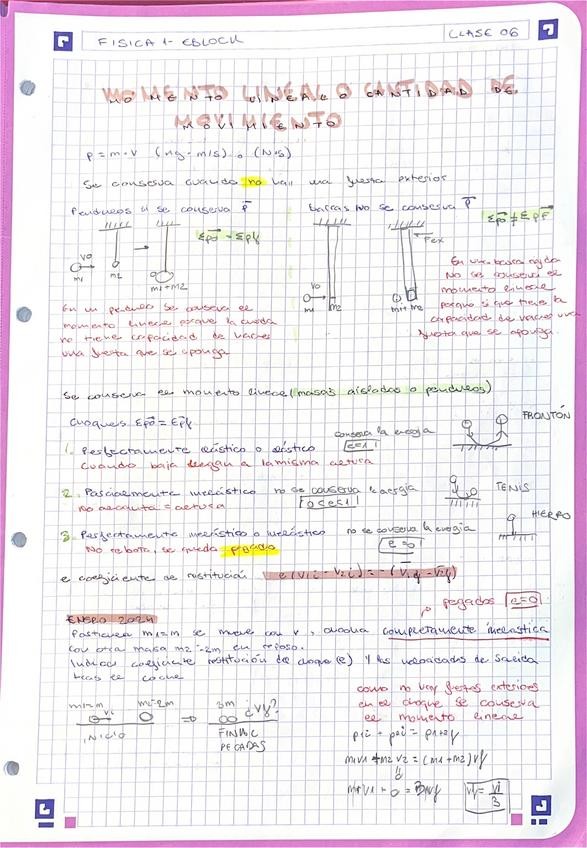 FISICA 1 - EBLOCK
CLASE 06
MOMENTO LINEAL O CANTIDAD DE
MOVIMIENTO
p = m·v (kg·m/s) o (N·s)
Se conserva cuando no hay una fuerza exterior
Péndulos si se conserva p⃗
Σp⃗o = Σp⃗f
vo
m1
m2
m1+m2
barras No se conserva p⃗
Σp⃗o ≠ Σp⃗F
Fex
vo
m1
m2
m1+m2
En un péndulo se conserva el
momento lineal porque la cuerda
no tiene capacidad de hacer
una fuerza que se oponga
En una barra rígida
No se conserva el
momento lineal
porque si que tiene la
capacidad de hacer una
fuerza que se oponga.
Se conserva el momento lineal (masas aisladas o péndulos)
Choques Σp⃗o = Σp⃗f
1. Perfectamente elástico o elástico
conserva la energía
e=1
Cuando baja llegan a la misma altura
FRONTÓN
2. Parcialmente inelástico no se conserva la energía
0≤e≤1
TENIS
3. Perfectamente inelástico o inelástico no se conserva la energía
e=0
No rebota, se queda pegado
HIERRO
e coeficiente de restitución
e(v1i - v2i) = -(v1f - v2f)
pegados e=0
ENERO 2024
Partícula m1=m se mueve con v, choca completamente inelástica
con otra masa m2=2m en reposo.
Indicar coeficiente restitución de choque (e) y las velocidades de salida
tras el choque
m1=m
m2=2m
vi
INICIO
⇒
3m
¿vf?
FINAL
PEGADAS
como no hay fuerzas exteriores
en el choque se conserva
el momento lineal
p1i + p2i = p1+2f
m1v1 + m2v2 = (m1+m2)vf
m·v1 + 0 = 3mvf
vf = vi/3